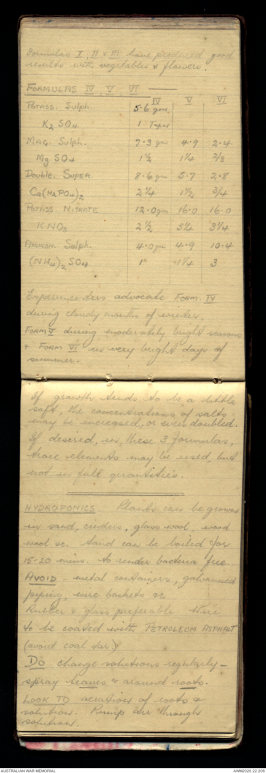 Formulas I, II & III have produced good
results with vegetables & flowers.
FORMULAS IV V VI
IV V VI
Potass. Sulph. 5·6 gm
K2 SO4 1
Mag. Sulph. 7·3 gm 4·9 2·4
Mg SO4 1½ 1¼ 2/3
Double Super 8·6 gm 5·7 2·8
Ca(H2PO4)2 2¼ 1½ 3/4
Potass. Nitrate 12·0 gm 16·0 16·0
KNO3 2½ 3¼ 3¼
Ammon. Sulph. 4·0 gm 4·9 10·4
(NH4)2 SO4 1 1¼ 3
Experimenters advocate FORM. IV
during cloudy months of winter.
FORM V during moderately bright seasons
& FORM VI in very bright days of
summer.
If growth tends to be a little
soft, the concentrations of salts
may be increased, or even doubled.
If desired, in these 3 formulas,
trace elements may be used, but
not in full quantities.
HYDROPONICS Plants can be grown
in sand, cinders, glass wool, wood
wool &c. Sand can be boiled for
15-20 mins. to render bacteria free.
AVOID - metal containers, galvanised
piping, wire baskets &c
Rubber & glass preferable
to be coated with PETROLEUM ASPHALT
(avoid coal tar)
DO change solutions regularly -
spray leaves & around roots.
LOOK TO aeration of roots &
solutions. Pump air through
solution.
AUSTRALIAN WAR MEMORIAL